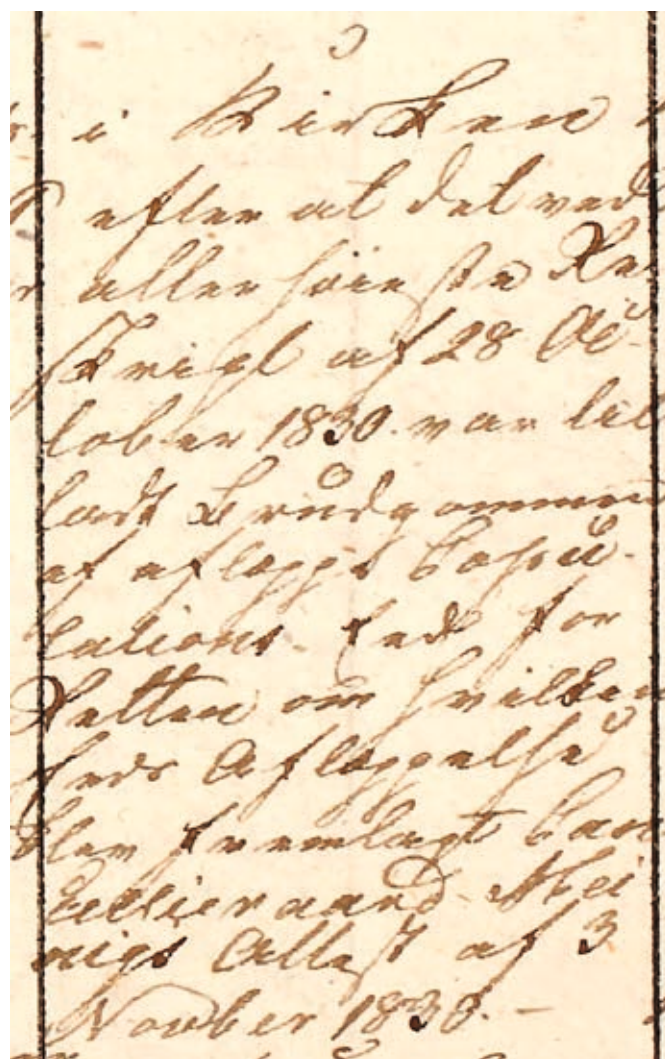 i Kirken
efter at det ved
allerhøieste Re-
skript af 28 Oc-
tober 1830. var til
ladt Brudgommen
at aflægge Copu-
lations Eed for
Retten om hvilken
Eeds Aflæggelse
blev fremlagt Can
celliraad
Attest af 3
Novber 1830. -